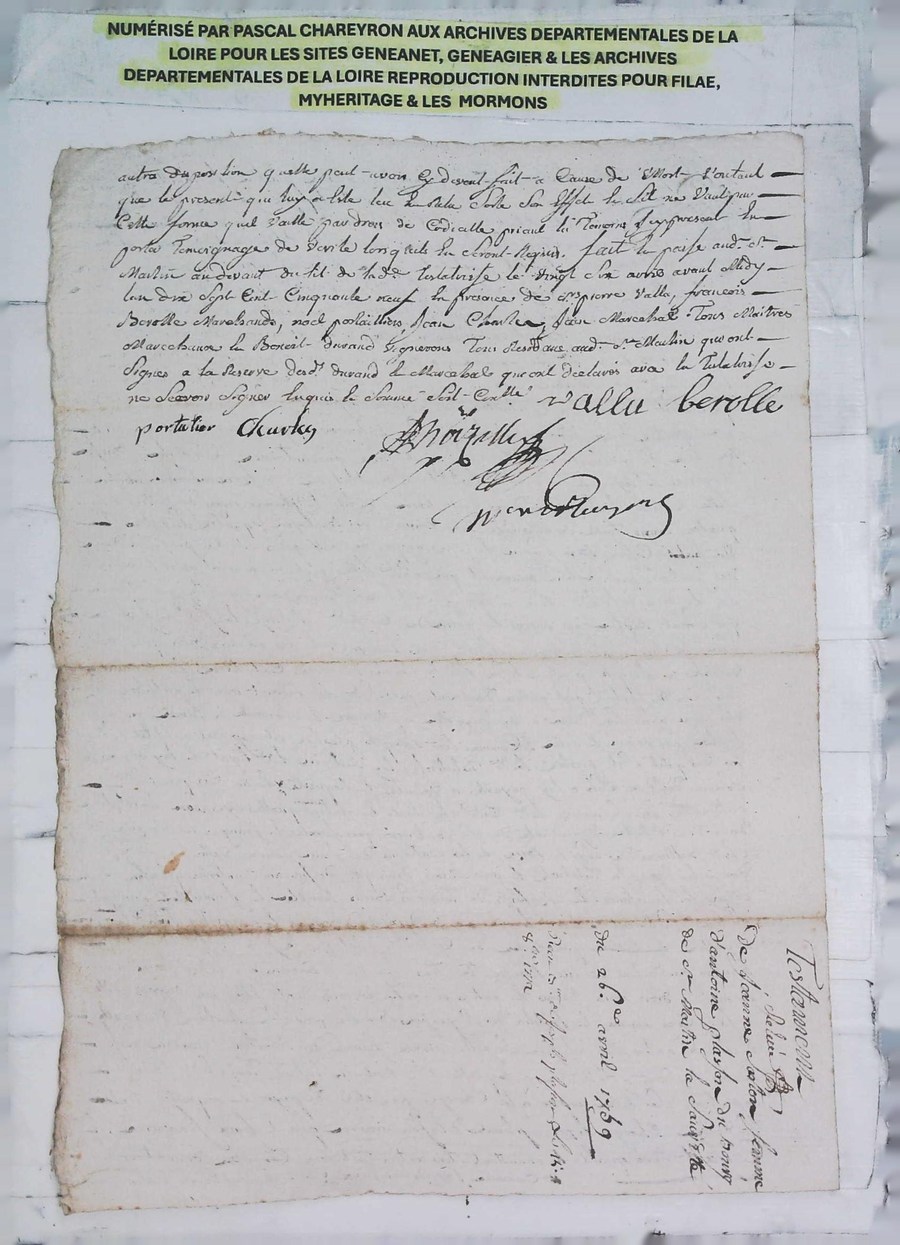 NUMÉRISÉ PAR PASCAL CHAREYRON AUX ARCHIVES DEPARTEMENTALES DE LA
LOIRE POUR LES SITES GENEANET, GENEAGIER & LES ARCHIVES
DEPARTEMENTALES DE LA LOIRE REPRODUCTION INTERDITES POUR FILAE,
MYHERITAGE & LES MORMONS
autre disposition quelle peut avoir cy devant fait a Cause de Mort voulant
que le present qui luy a este leu
Cette forme quil vaille par droit de Codicille priant les Temoins d'icy present
porter Temoignage de verite lorsquils en seront Requis. fait et passé aud. St
Martin au devant du lit de lad. Testatrisse le vingt six avril avant Midy
sept Cent Cinquante neuf En presance de srs pierre valla, françois
Berolle Marchands, noel portallier, Jean Charles, Jean Marechal Tous Maitres
Marechaux et Benoit durand vigneron Tous Residans aud. St Martin qui ont
Signés a la Reserve desd. durand et Marechal qui ont declarés avec la Testatrisse
ne Scavoir Signer Enquis et Sommé
Valla berolle
portalier Charles
Testament
de Jeanne femme
d'antoine du
de St Martin la Sauveté
du 26e avril 1759